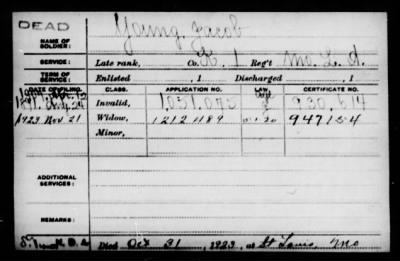 DEAD
NAME OF SOLDIER: Young, Jacob
SERVICE: Late rank, Co. K, 1 Reg't Mo. L. A.
TERM OF SERVICE: Enlisted , 1 Discharged , 1
DATE OF FILING. CLASS. APPLICATION NO. LAW. CERTIFICATE NO.
Invalid, 1,031,043 930,614
1923 Nov 21 Widow, 1212489 947154
Minor,
ADDITIONAL SERVICES:
REMARKS:
Died Oct 31, 1923, at St Louis, Mo